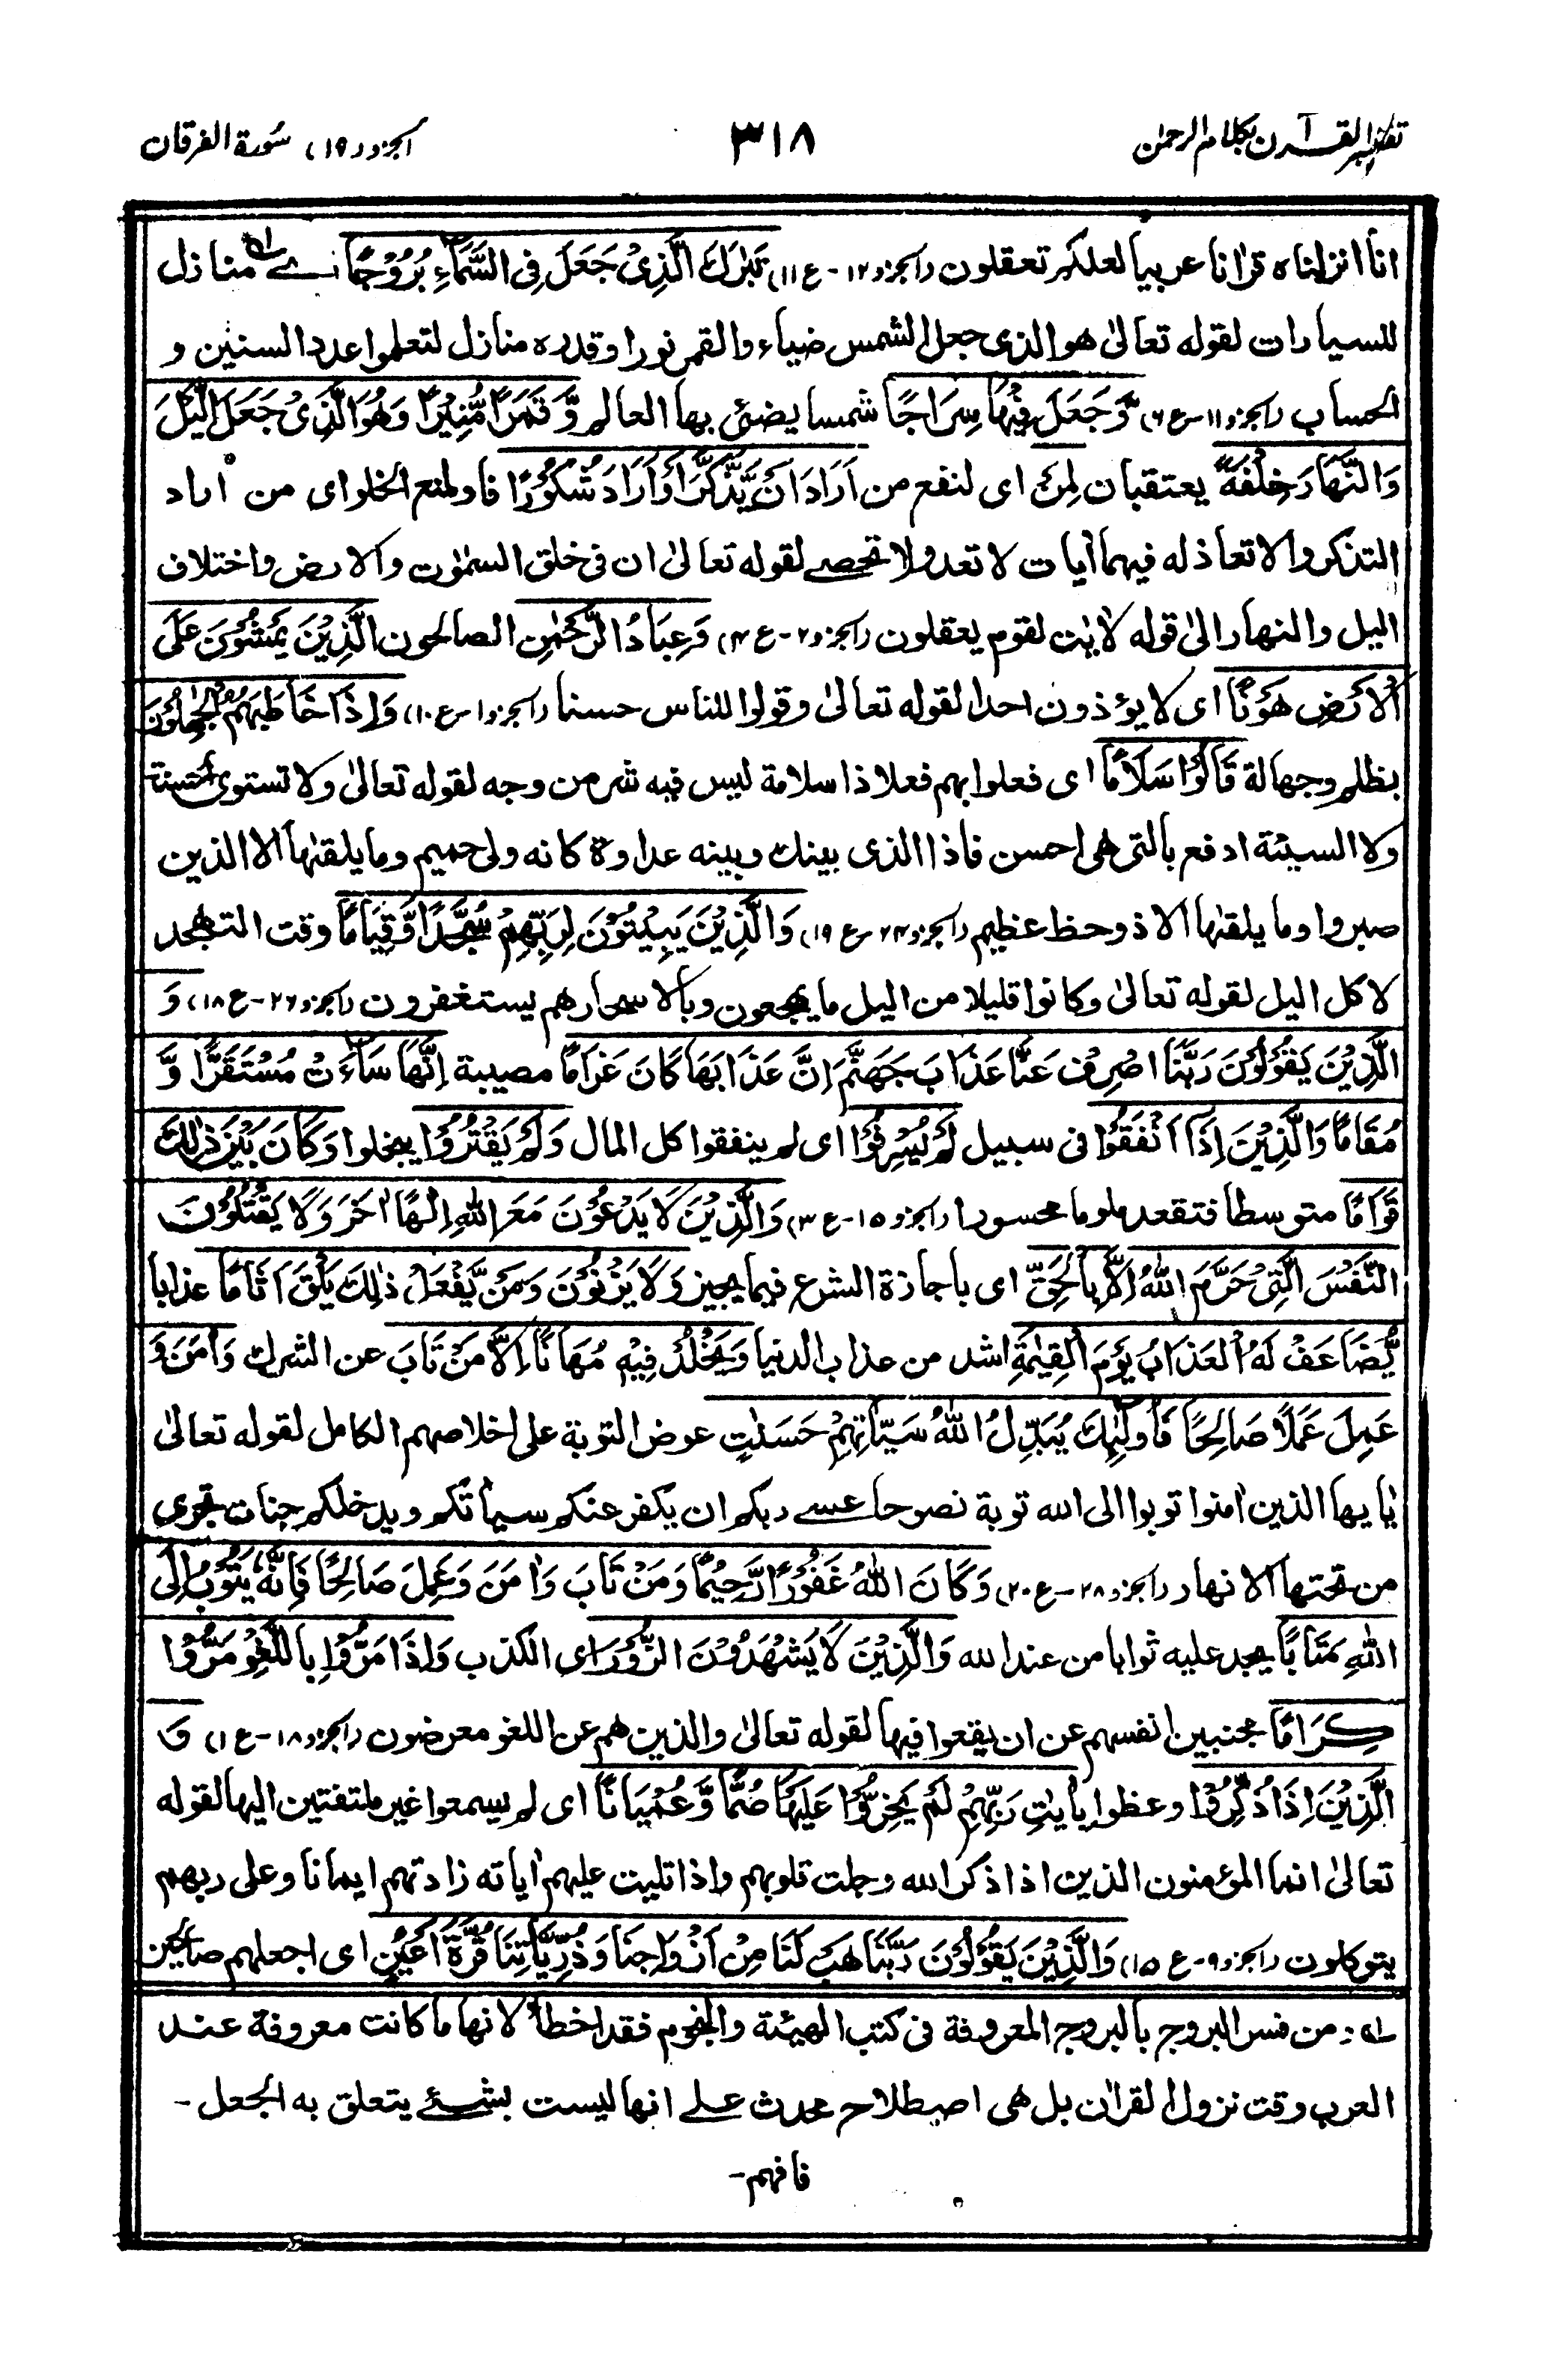 تفسیر القرآن بکلام الرحمن
٣١٨
الجزء (١٩) سُورة الفرقان
انا انزلناه قرانا عربیا لعلکم تعقلون (الجزء ١٢-ع ١١) تَبٰرَكَ الَّذِیْ جَعَلَ فِی السَّمَآءِ بُرُوْجًا اے لہ منازل
للسیارات لقوله تعالیٰ هو الذی جعل الشمس ضیاء والقمر نورا وقدره منازل لتعلموا عدد السنین و
الحساب (الجزء ١١-ع ٦) وَّجَعَلَ فِیْهَا سِرَاجًا شمسا یضئ بها العالم وَّقَمَرًا مُّنِیْرًا وَهُوَ الَّذِیْ جَعَلَ الَّیْلَ
وَالنَّهَارَ خِلْفَةً یعتقبان لِمَنْ ای لنفع من اَرَادَ اَنْ یَّذَّكَّرَ اَوْ اَرَادَ شُكُوْرًا فاو لمنع الخلو ای من اراد
التذکر والاتعاذ له فیهما اٰیات لا تعد ولا تحصے لقوله تعالیٰ ان فی خلق السمٰوٰت والارض واختلاف
الیل والنهار الیٰ قوله لاٰیٰت لقوم یعقلون (الجزء ٢-ع ٤) وَعِبَادُ الرَّحْمٰنِ الصالحون الَّذِیْنَ یَمْشُوْنَ عَلَی
الْاَرْضِ هَوْنًا ای لا یؤذون احدا لقوله تعالیٰ وقولوا للناس حسنا (الجزء ١-ع ١٠) وَاِذَا خَاطَبَهُمُ الْجٰهِلُوْنَ
بظلم وجهالة قَالُوْا سَلَامًا ای فعلوا بهم فعلا ذا سلامة لیس فیه شر من وجه لقوله تعالیٰ ولا تستوی الحسنة
ولا السیئة ادفع بالتی هی احسن فاذا الذی بینك وبینه عداوة کانه ولی حمیم وما یلقٰها الا الذین
صبروا وما یلقٰها الا ذو حظ عظیم (الجزء ٢٤-ع ١٩) وَالَّذِیْنَ یَبِیْتُوْنَ لِرَبِّهِمْ سُجَّدًا وَّقِیَامًا وقت التهجد
لا کل الیل لقوله تعالیٰ وکانوا قلیلا من الیل ما یهجعون وبالاسحار هم یستغفرون (الجزء ٢٦-ع ١٨) وَ
الَّذِیْنَ یَقُوْلُوْنَ رَبَّنَا اصْرِفْ عَنَّا عَذَابَ جَهَنَّمَ اِنَّ عَذَابَهَا كَانَ غَرَامًا مصیبة اِنَّهَا سَآءَتْ مُسْتَقَرًّا وَّ
مُقَامًا وَالَّذِیْنَ اِذَا اَنْفَقُوْا فی سبیل لَمْ یُسْرِفُوْا ای لم ینفقوا کل المال وَلَمْ یَقْتُرُوْا یبخلوا وَكَانَ بَیْنَ ذٰلِكَ
قَوَامًا متوسطا فتقعد ملوما محسورا (الجزء ١٥-ع ٣) وَالَّذِیْنَ لَا یَدْعُوْنَ مَعَ اللهِ اِلٰهًا اٰخَرَ وَلَا یَقْتُلُوْنَ
النَّفْسَ الَّتِیْ حَرَّمَ اللهُ اِلَّا بِالْحَقِّ ای باجازة الشرع فیما یجیز وَلَا یَزْنُوْنَ وَمَنْ یَّفْعَلْ ذٰلِكَ یَلْقَ اَثَامًا عذابا
یُّضَاعَفْ لَهُ الْعَذَابُ یَوْمَ الْقِیٰمَةِ اشد من عذاب الدنیا وَیَخْلُدْ فِیْهٖ مُهَانًا اِلَّا مَنْ تَابَ عن الشرك وَاٰمَنَ وَ
عَمِلَ عَمَلًا صَالِحًا فَاُولٰٓئِكَ یُبَدِّلُ اللهُ سَیِّاٰتِهِمْ حَسَنٰتٍ عوض التوبة علی اخلاصهم الکامل لقوله تعالیٰ
یٰایها الذین اٰمنوا توبوا الی الله توبة نصوحا عسے ربکم ان یکفر عنکم سیاٰتکم ویدخلکم جنات تجری
من تحتها الانهار (الجزء ٢٨-ع ٢٠) وَكَانَ اللهُ غَفُوْرًا رَّحِیْمًا وَمَنْ تَابَ وَاٰمَنَ وَعَمِلَ صَالِحًا فَاِنَّهٗ یَتُوْبُ اِلَی
اللهِ مَتَابًا یجد علیه ثوابا من عند الله وَالَّذِیْنَ لَا یَشْهَدُوْنَ الزُّوْرَ ای الکذب وَاِذَا مَرُّوْا بِاللَّغْوِ مَرُّوْا
كِرَامًا مجنبین انفسهم عن ان یقعوا فیها لقوله تعالیٰ والذین هم عن اللغو معرضون (الجزء ١٨-ع ١) وَ
الَّذِیْنَ اِذَا ذُكِّرُوْا وعظوا بِاٰیٰتِ رَبِّهِمْ لَمْ یَخِرُّوْا عَلَیْهَا صُمًّا وَّعُمْیَانًا ای لم یسمعوا غیر ملتفتین الیها لقوله
تعالیٰ انما المؤمنون الذین اذا ذکر الله وجلت قلوبهم واذا تلیت علیهم اٰیاته زادتهم ایمانا وعلی ربهم
یتوکلون (الجزء ٩-ع ١٥) وَالَّذِیْنَ یَقُوْلُوْنَ رَبَّنَا هَبْ لَنَا مِنْ اَزْوَاجِنَا وَذُرِّیَّاتِنَا قُرَّةَ اَعْیُنٍ ای اجعلهم صالحین
لہ : من فسر البروج بالبروج المعروفة فی کتب الهیئة والنجوم فقد اخطأ لانها ما کانت معروفة عند
العرب وقت نزول القراٰن بل هی اصطلاح محدث علے انها لیست بشئے یتعلق به الجعل -
فافهم -